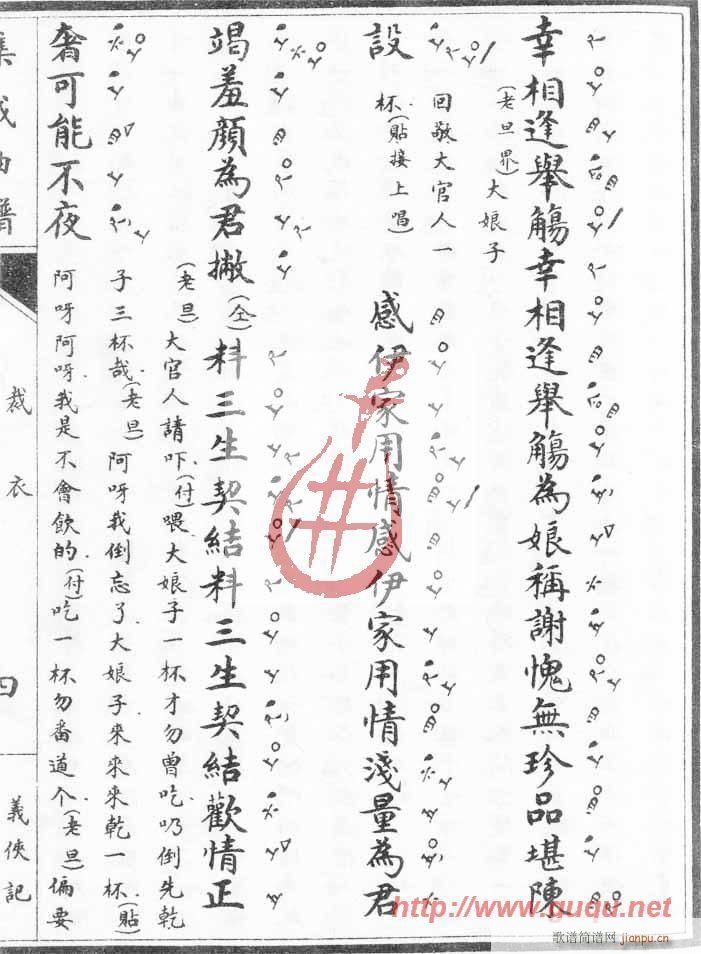 幸相逢舉觴幸相逢舉觴為娘稱謝愧無珍品堪陳
設
(老旦界)大娘子
回敬大官人一
杯(貼接上唱)
感伊家用情感伊家用情淺量為君
竭羞顏為君撇(仝)料三生契結料三生契結歡情正
(老旦)大官人請吓(付)喂大娘子一杯才勿曾吃仍倒先乾
子三杯哉(老旦)阿呀我倒忘了大娘子來來來乾一杯(貼)
奢可能不夜
阿呀阿呀我是不會飲的(付)吃一杯勿番道个(老旦)偏要
集成曲譜
裁衣
四
義俠記
http://www.guqu.net
歌谱简谱网
jianpu.cn